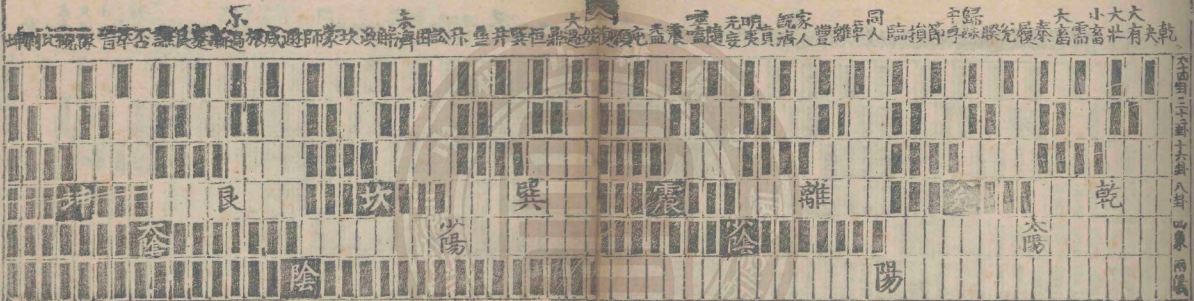 乾 夬 大有 大壯 小畜 需 大畜 泰 履 兌 睽 歸妹 中孚 節 損 臨 同人 革 離 豐 家人 既濟 賁 明夷 无妄 隨 噬嗑 震 益 屯 頤 復 姤 大過 鼎 恒 巽 井 蠱 升 訟 困 未濟 解 渙 坎 蒙 師 遯 咸 旅 小過 漸 蹇 艮 謙 否 萃 晉 豫 觀 比 剝 坤
六十四卦 三十二卦 十六卦 八卦 四象 兩儀
乾 兌 離 震 巽 坎 艮 坤
太陽 少陰 少陽 太陰
陽 陰